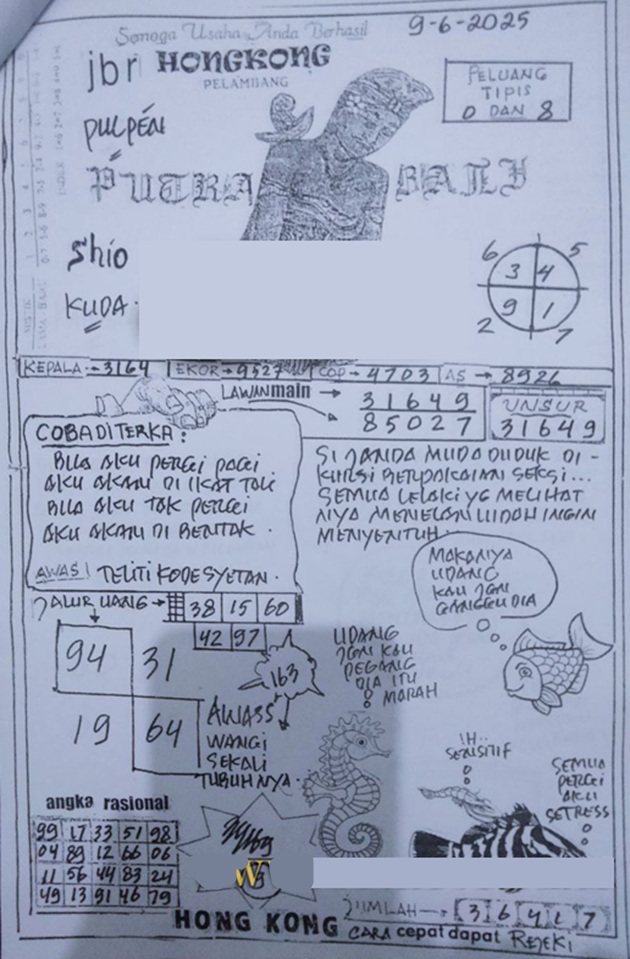 Semoga Usaha Anda Berhasil
9-6-2025
jbr HONGKONG
PELAMBANG
PELUANG
TIPIS
0 DAN 8
PULPEN
PUTRA BALI
Shio
KUDA
6 5
3 4
9 1
2 7
KEPALA :- 3164 EKOR → 9527 COP → 4703 AS → 8926
LAWAN main → 31649
85027
UNSUR
31649
COBA DITERKA :
BILA AKU PERGI PAGI
AKU AKAN DI IKAT TALI
BILA AKU TAK PERGI
AKU AKAN DI BENTAK .
AWAS! TELITI KODE SYETAN .
SI JANDA MUDA DUDUK DI -
KURSI BERPAKAIAN SEKSI ...
SEMUA LELAKI YG MELIHAT
NYA MENELAN LUDAH INGIN
MENYENTUH .
MAKANYA
UDANG
KAU JGN
GANGGU DIA
JALUR UANG → 38 15 60
42 97
94 31
19 64
163
AWASS
WANGI
SEKALI
TUBUHNYA .
UDANG
JGN KAU
PEGANG
DIA ITU
MARAH
IH..
SENSITIF
SEMUA
PERGI
AKU
SETRESS
angka rasional
99 17 33 51 98
04 89 12 66 06
11 56 44 83 24
49 13 91 46 79
JUMLAH → 3 6 4 1 7
HONG KONG CARA cepat dapat REJEKI